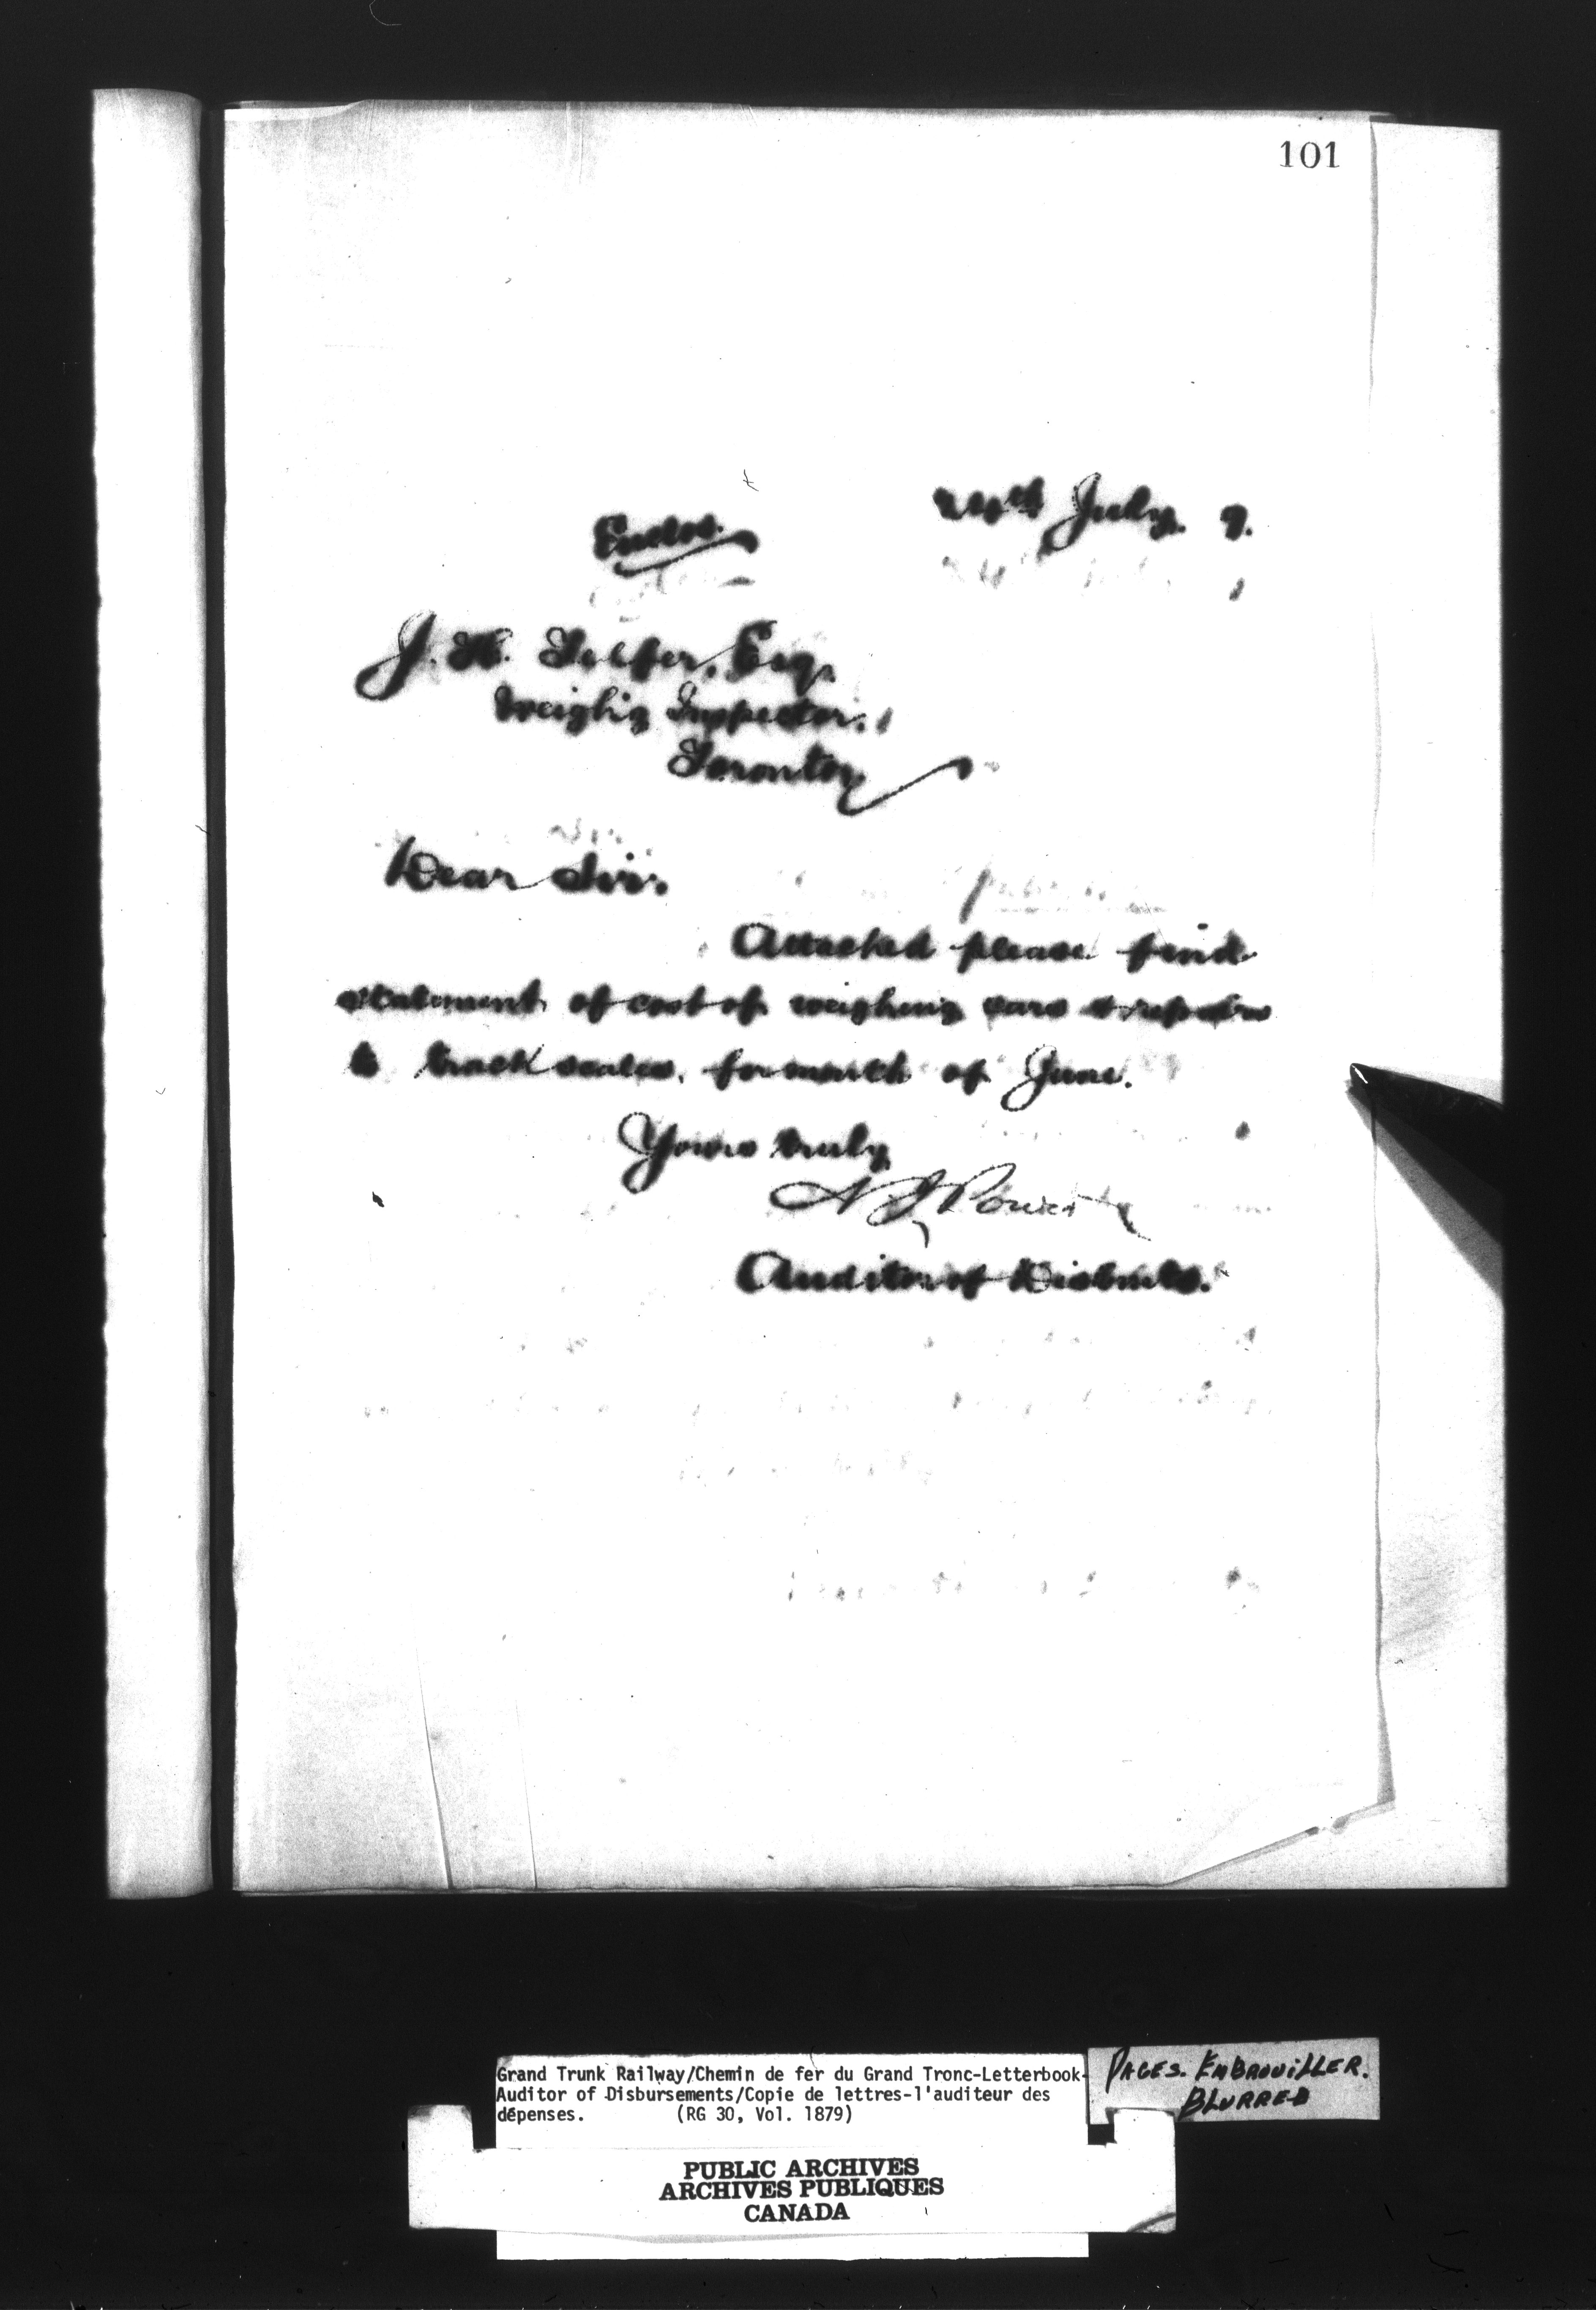 101
Enclos. 24th July. 9.
J. H. Telfer, Esq.
Weighig Inspector,
Toronto,
Dear Sir.
Attached please find
statement of cost of weighing cars & repairs
to track scales, for month of June.
Yours truly
N J Power
Auditor of Disbmts.
Grand Trunk Railway/Chemin de fer du Grand Tronc-Letterbook-
Auditor of Disbursements/Copie de lettres-l'auditeur des
dépenses. (RG 30, Vol. 1879)
PAGES. EMBROUILLER.
BLURRED
PUBLIC ARCHIVES
ARCHIVES PUBLIQUES
CANADA